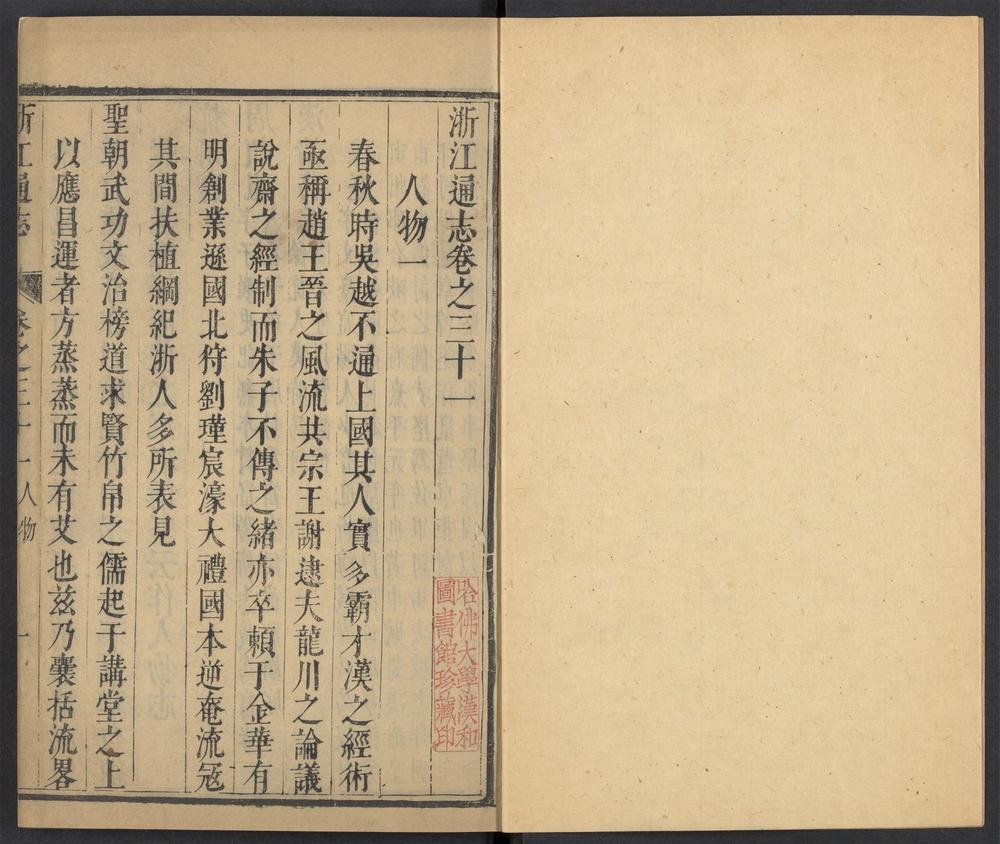 浙江通志卷之三十一
人物一
春秋時吳越不通上國其人實多霸才漢之經術
亟稱趙王晉之風流共宗王謝逮夫龍川之論議
說齋之經制而朱子不傳之緒亦卒賴于金華有
明創業遜國北狩劉瑾宸濠大禮國本逆奄流冦
其間扶植綱紀浙人多所表見
聖朝武功文治榜道求賢竹帛之儒起于講堂之上
以應昌運者方蒸蒸而未有艾也茲乃囊括流畧
浙江通志
卷之三十一
人物
一
哈佛大學漢和
圖書館珍藏印